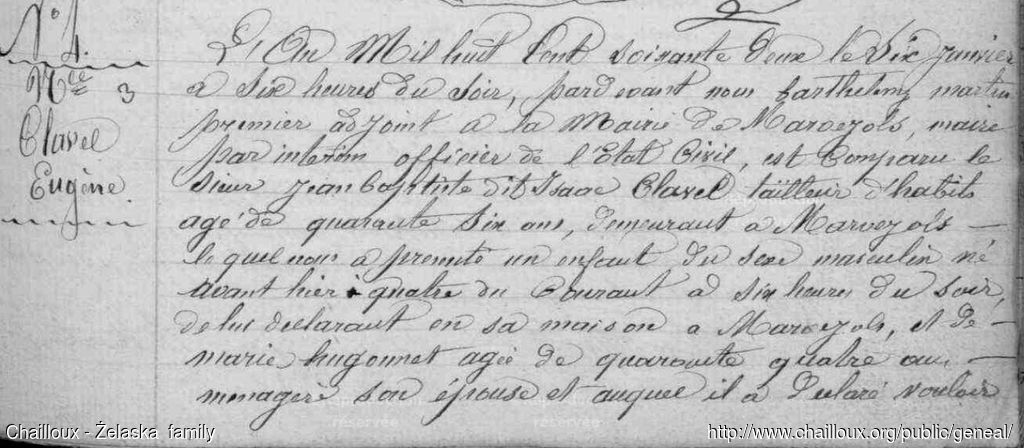 N° 4.
Nce 3
Clavel
Eugène
L'An Mil huit Cent soixante deux le Six janvier
a Six heures du Soir, pardevant nous Barthelemy martin
premier adjoint a la Mairie de Marvejols, maire
par interim officier de l'Etat Civil, est Comparu le
Sieur Jean baptiste dit Isaac Clavel tailleur d'habits
agé de quarante Six ans, demeurant a Marvejols —
lequel nous a presenté un enfant du sexe masculin né
avant hier quatre du Courant a six heures du soir,
de lui declarant en sa maison a Marvejols, et de —
marie hugonnet agée de quarante quatre ans —
menagere son épouse et auquel il a declaré vouloir
Chailloux - Želaska family
http://www.chailloux.org/public/geneal/